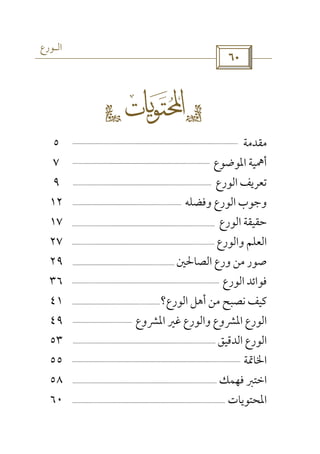 الـورع
٦٠
المُحْتَوَيَات
مقدمة ٥
أهمية الموضوع ٧
تعريف الورع ٩
وجوب الورع وفضله ١٢
حقيقة الورع ١٧
العلم والورع ٢٧
صور من ورع الصالحين ٢٩
فوائد الورع ٣٦
كيف نصبح من أهل الورع؟ ٤١
الورع المشروع والورع غير المشروع ٤٩
الورع الدقيق ٥٣
الخاتمة ٥٥
اختبر فهمك ٥٨
المحتويات ٦٠